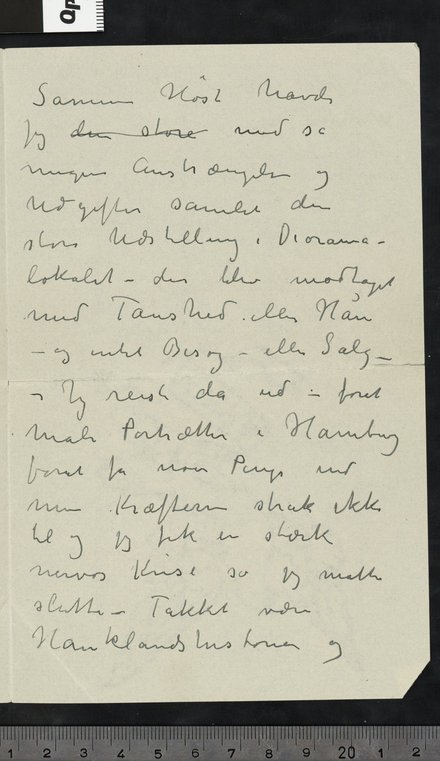 Samme Høst havde
jeg den store med så
megen Anstrængelse og
Udgifter samlet den
store Udstilling i Diorama-
lokalet – den blev modtaget
med Taushed eller Hån
– og intet Besøg – eller Salg –
– Jeg reiste da ud – foret
male Portrætter i Hamburg
foret få noen Penge ind
men Kræfterne strak ikke
til og jeg fik en stærk
nervøs Krise så jeg måtte
slutte – Takket være
Hauklandshistorien og